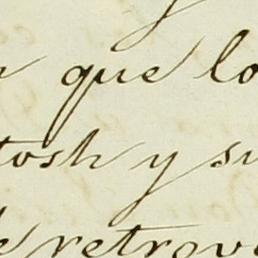 que lo
tosh y su
retrov